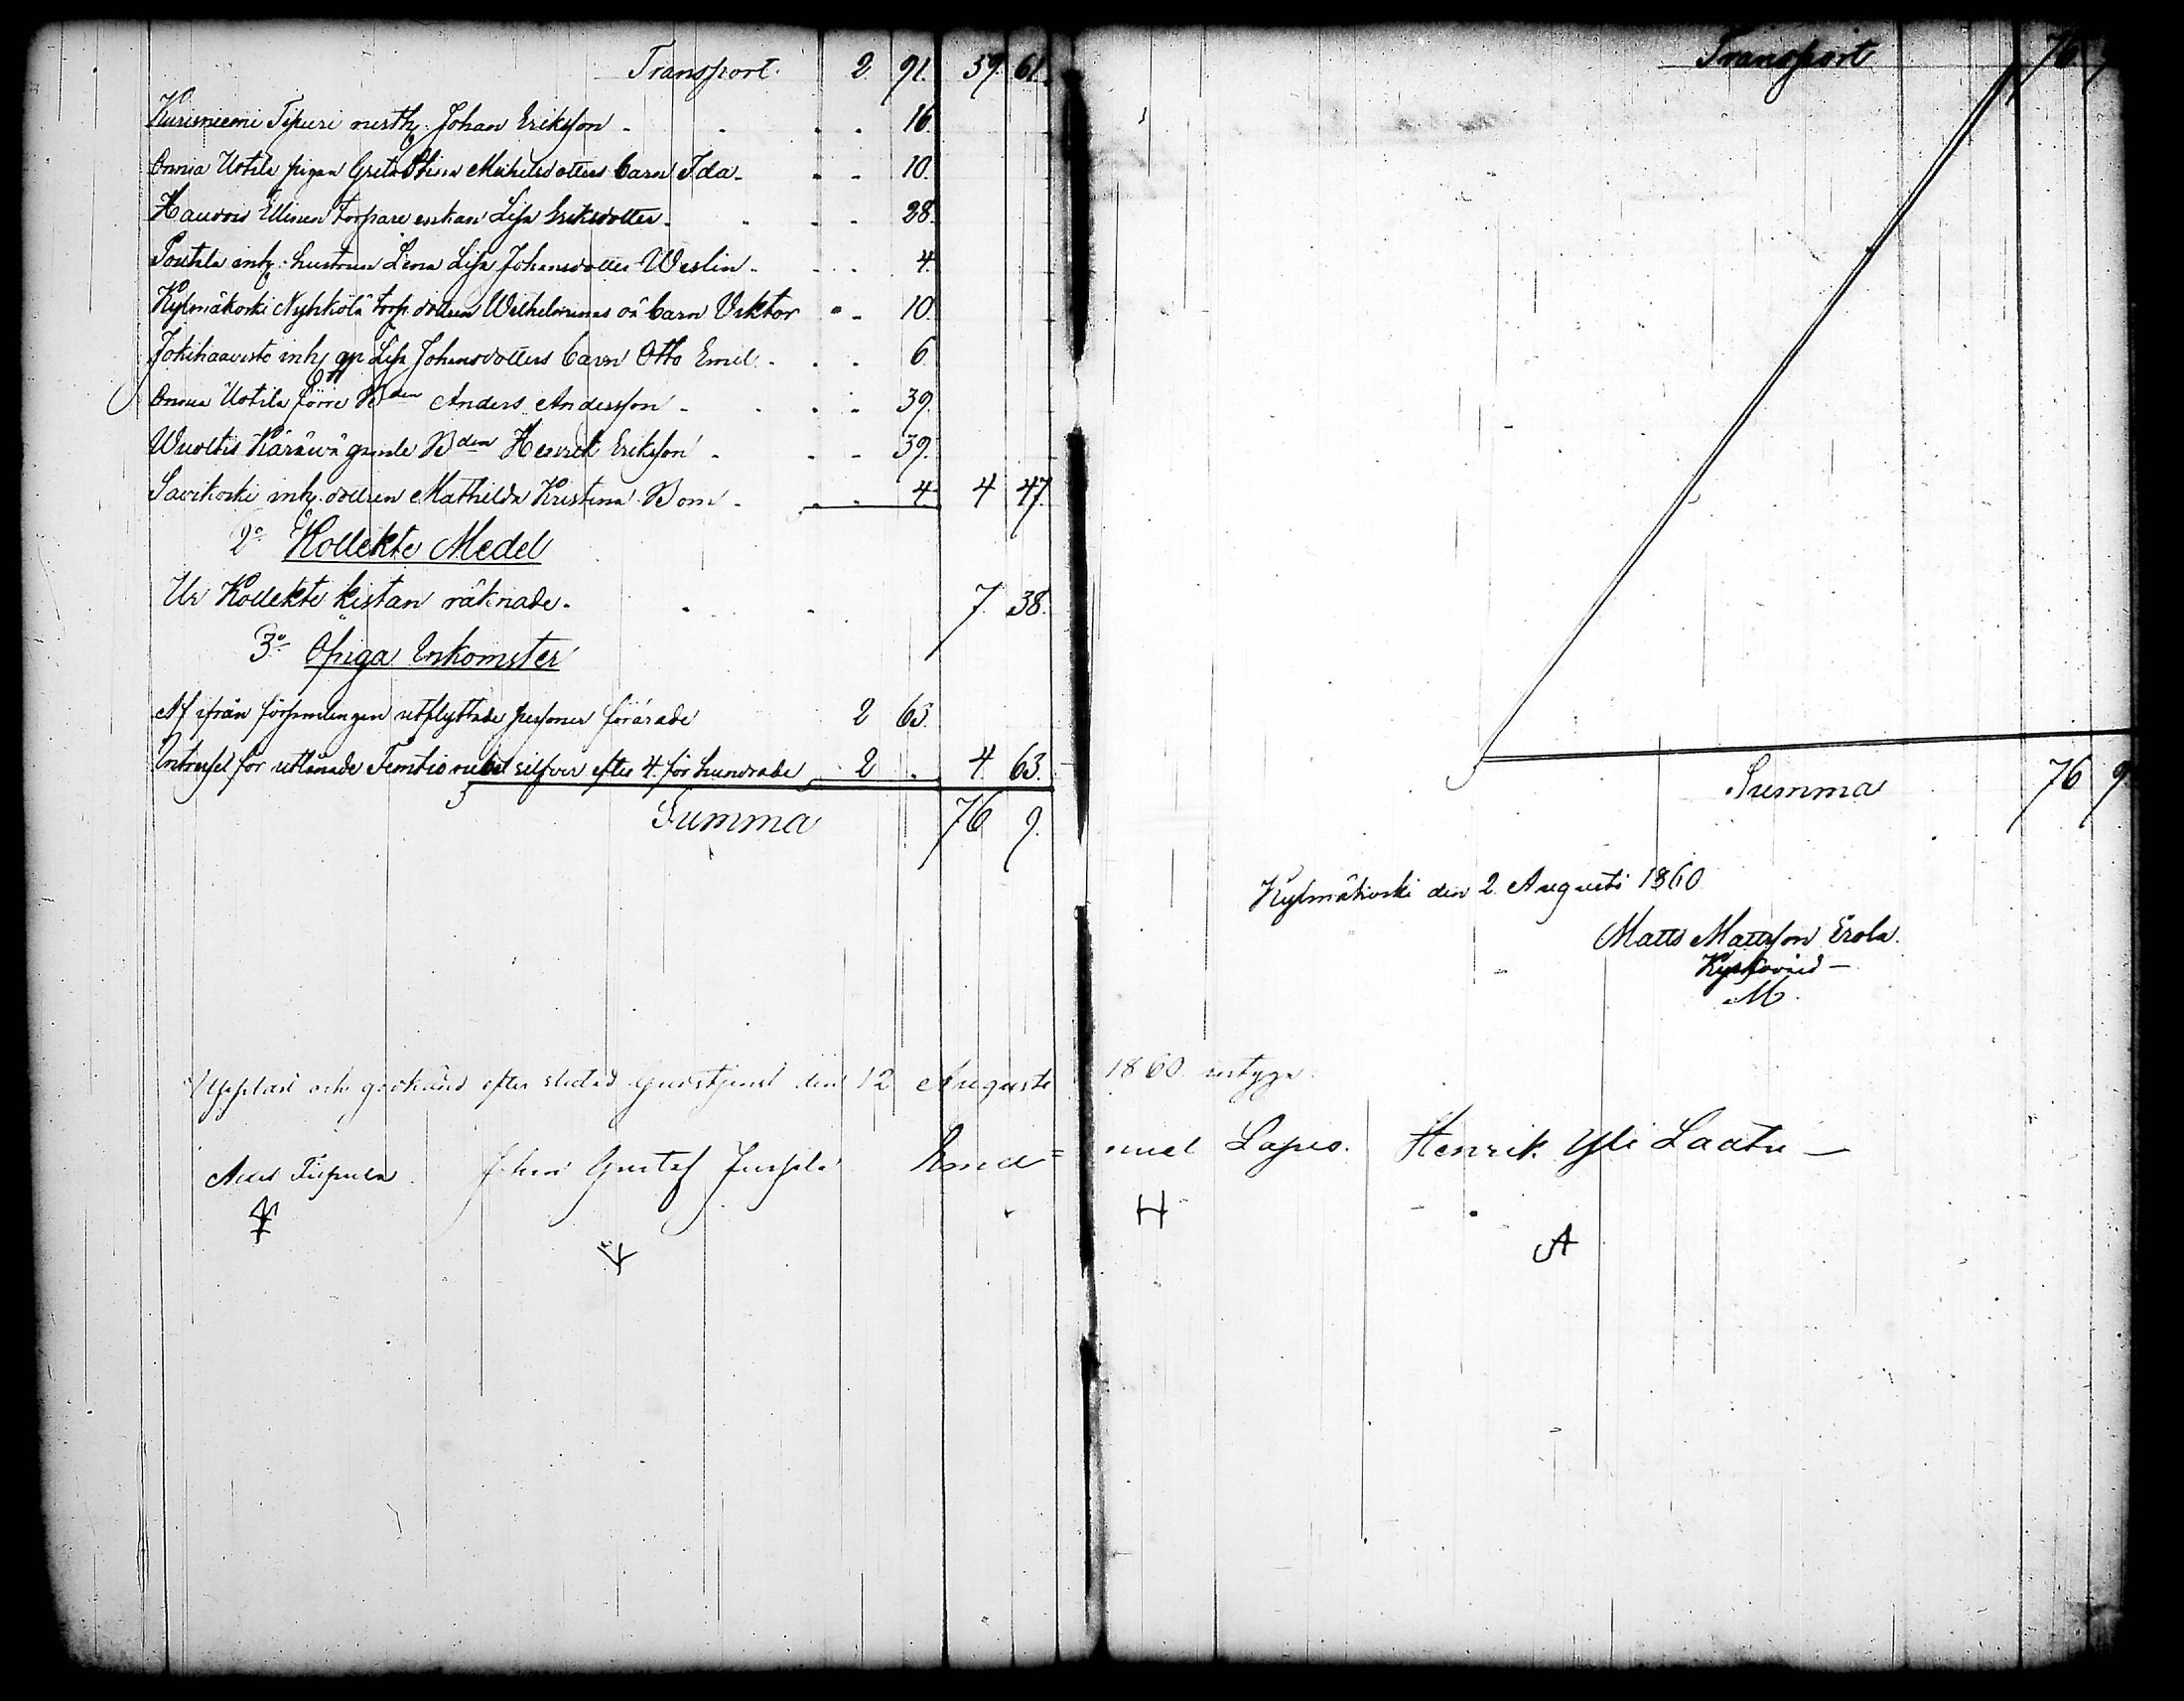 Transport. 2 91. 59. 61.
Kurisniemi Tipuri Johan Eriksson - 16.
Onnia Uotila pigan Greta Stina Michelsdotters barn Ida - 10.
Haudois Ellinen torpare enkan Lisa Eriksdotter - 28.
Poutila inhs: hustrun Lena Lisa Johansdotter Weslin - 4.
Kylmäkoski Nyhkälä torp. dottren Wilhelminas oä barn Viktor 10.
Jokihaavisto inhs qp. Lisa Johansdotters barn Otto Emil - 6.
Onnia Uotila förre Bden Anders Andersson - 39.
Wuoltis Käräwä gamle Bden Henrik Eriksson - 39.
Savikoski inhs. dottren Mathilda Kristina Bom - 4. 4 47.
2o Kollekte Medel
Ur Kollekte kistan räknade. 7. 38.
3o Öfriga Inkomster
Af ifrån församlingen utflyttade personer förärade 2 63.
Intressel för utlånade Femtio rubel silfver efter 4. för hundrade 2 . 4. 63.
Summa 76 9.
Transport 76. 9
Summa 76 9
Kylmäkoski den 2. Augusti 1860
Matts Mattsson Erola.
Kyrkovärd -
M.
Uppläst och godkänd efter slutad gudstjenst den 12 Augusti 1860. intyga:
Tiipula. Johan Gustaf Jussila Ema= nuel Lapis. Henrik Yli Laatu -
H
A